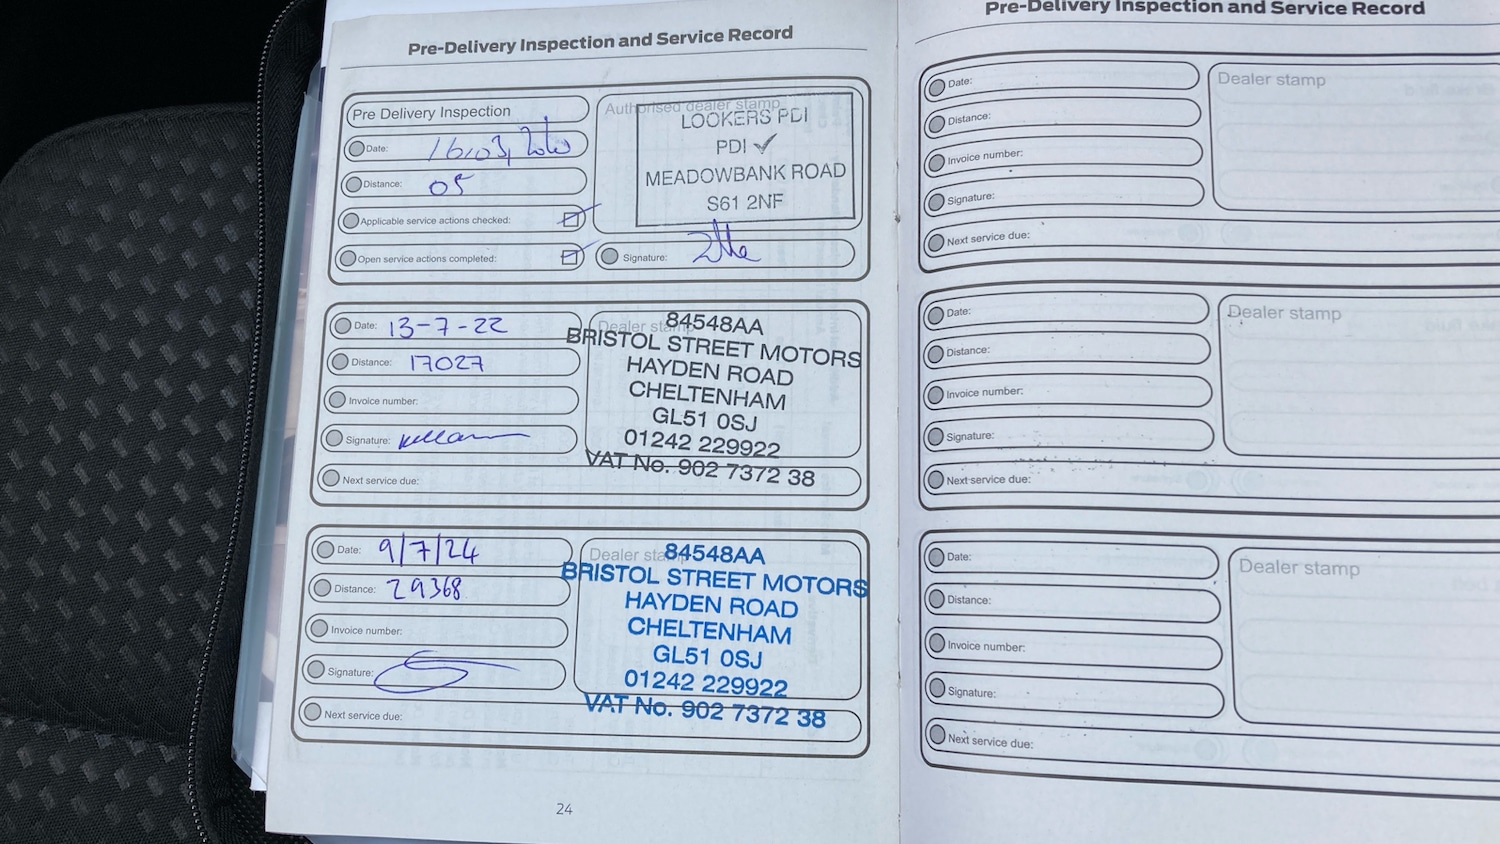 Pre-Delivery Inspection and Service Record
Pre Delivery Inspection
Date: 16.03,2020
Distance: 05
Applicable service actions checked:
Open service actions completed:
Authorised dealer stamp
LOOKERS PDI
PDI ✓
MEADOWBANK ROAD
S61 2NF
Signature:
Date: 13-7-22
Distance: 17027
Invoice number:
Signature:
Next service due:
Dealer stamp
84548AA
BRISTOL STREET MOTORS
HAYDEN ROAD
CHELTENHAM
GL51 0SJ
01242 229922
VAT No. 902 7372 38
Date: 9/7/24
Distance: 29368
Invoice number:
Signature:
Next service due:
Dealer stamp
84548AA
BRISTOL STREET MOTORS
HAYDEN ROAD
CHELTENHAM
GL51 0SJ
01242 229922
VAT No. 902 7372 38
24
Pre-Delivery Inspection and Service Record
Date:
Distance:
Invoice number:
Signature:
Next service due:
Dealer stamp
Date:
Distance:
Invoice number:
Signature:
Next service due:
Dealer stamp
Date:
Distance:
Invoice number:
Signature:
Next service due:
Dealer stamp